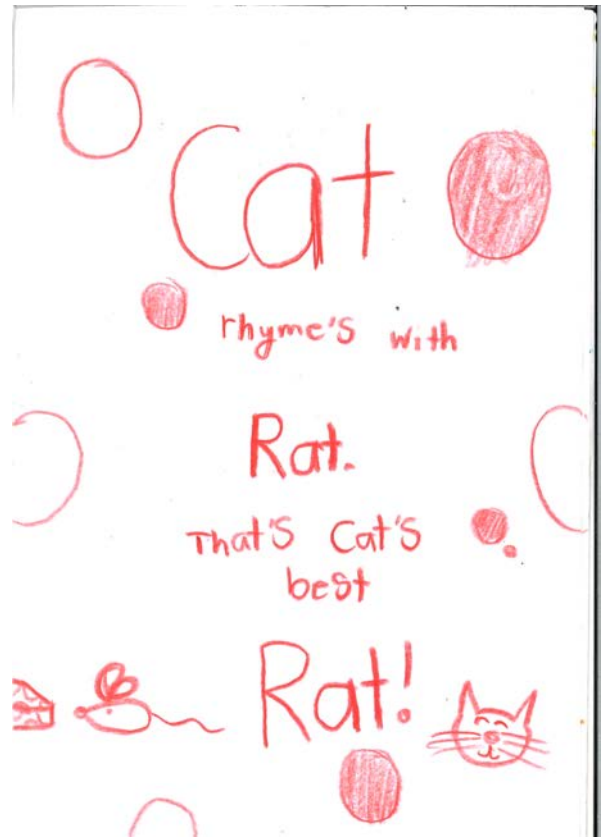 Cat
rhyme's with
Rat.
That's Cat's
best
Rat!